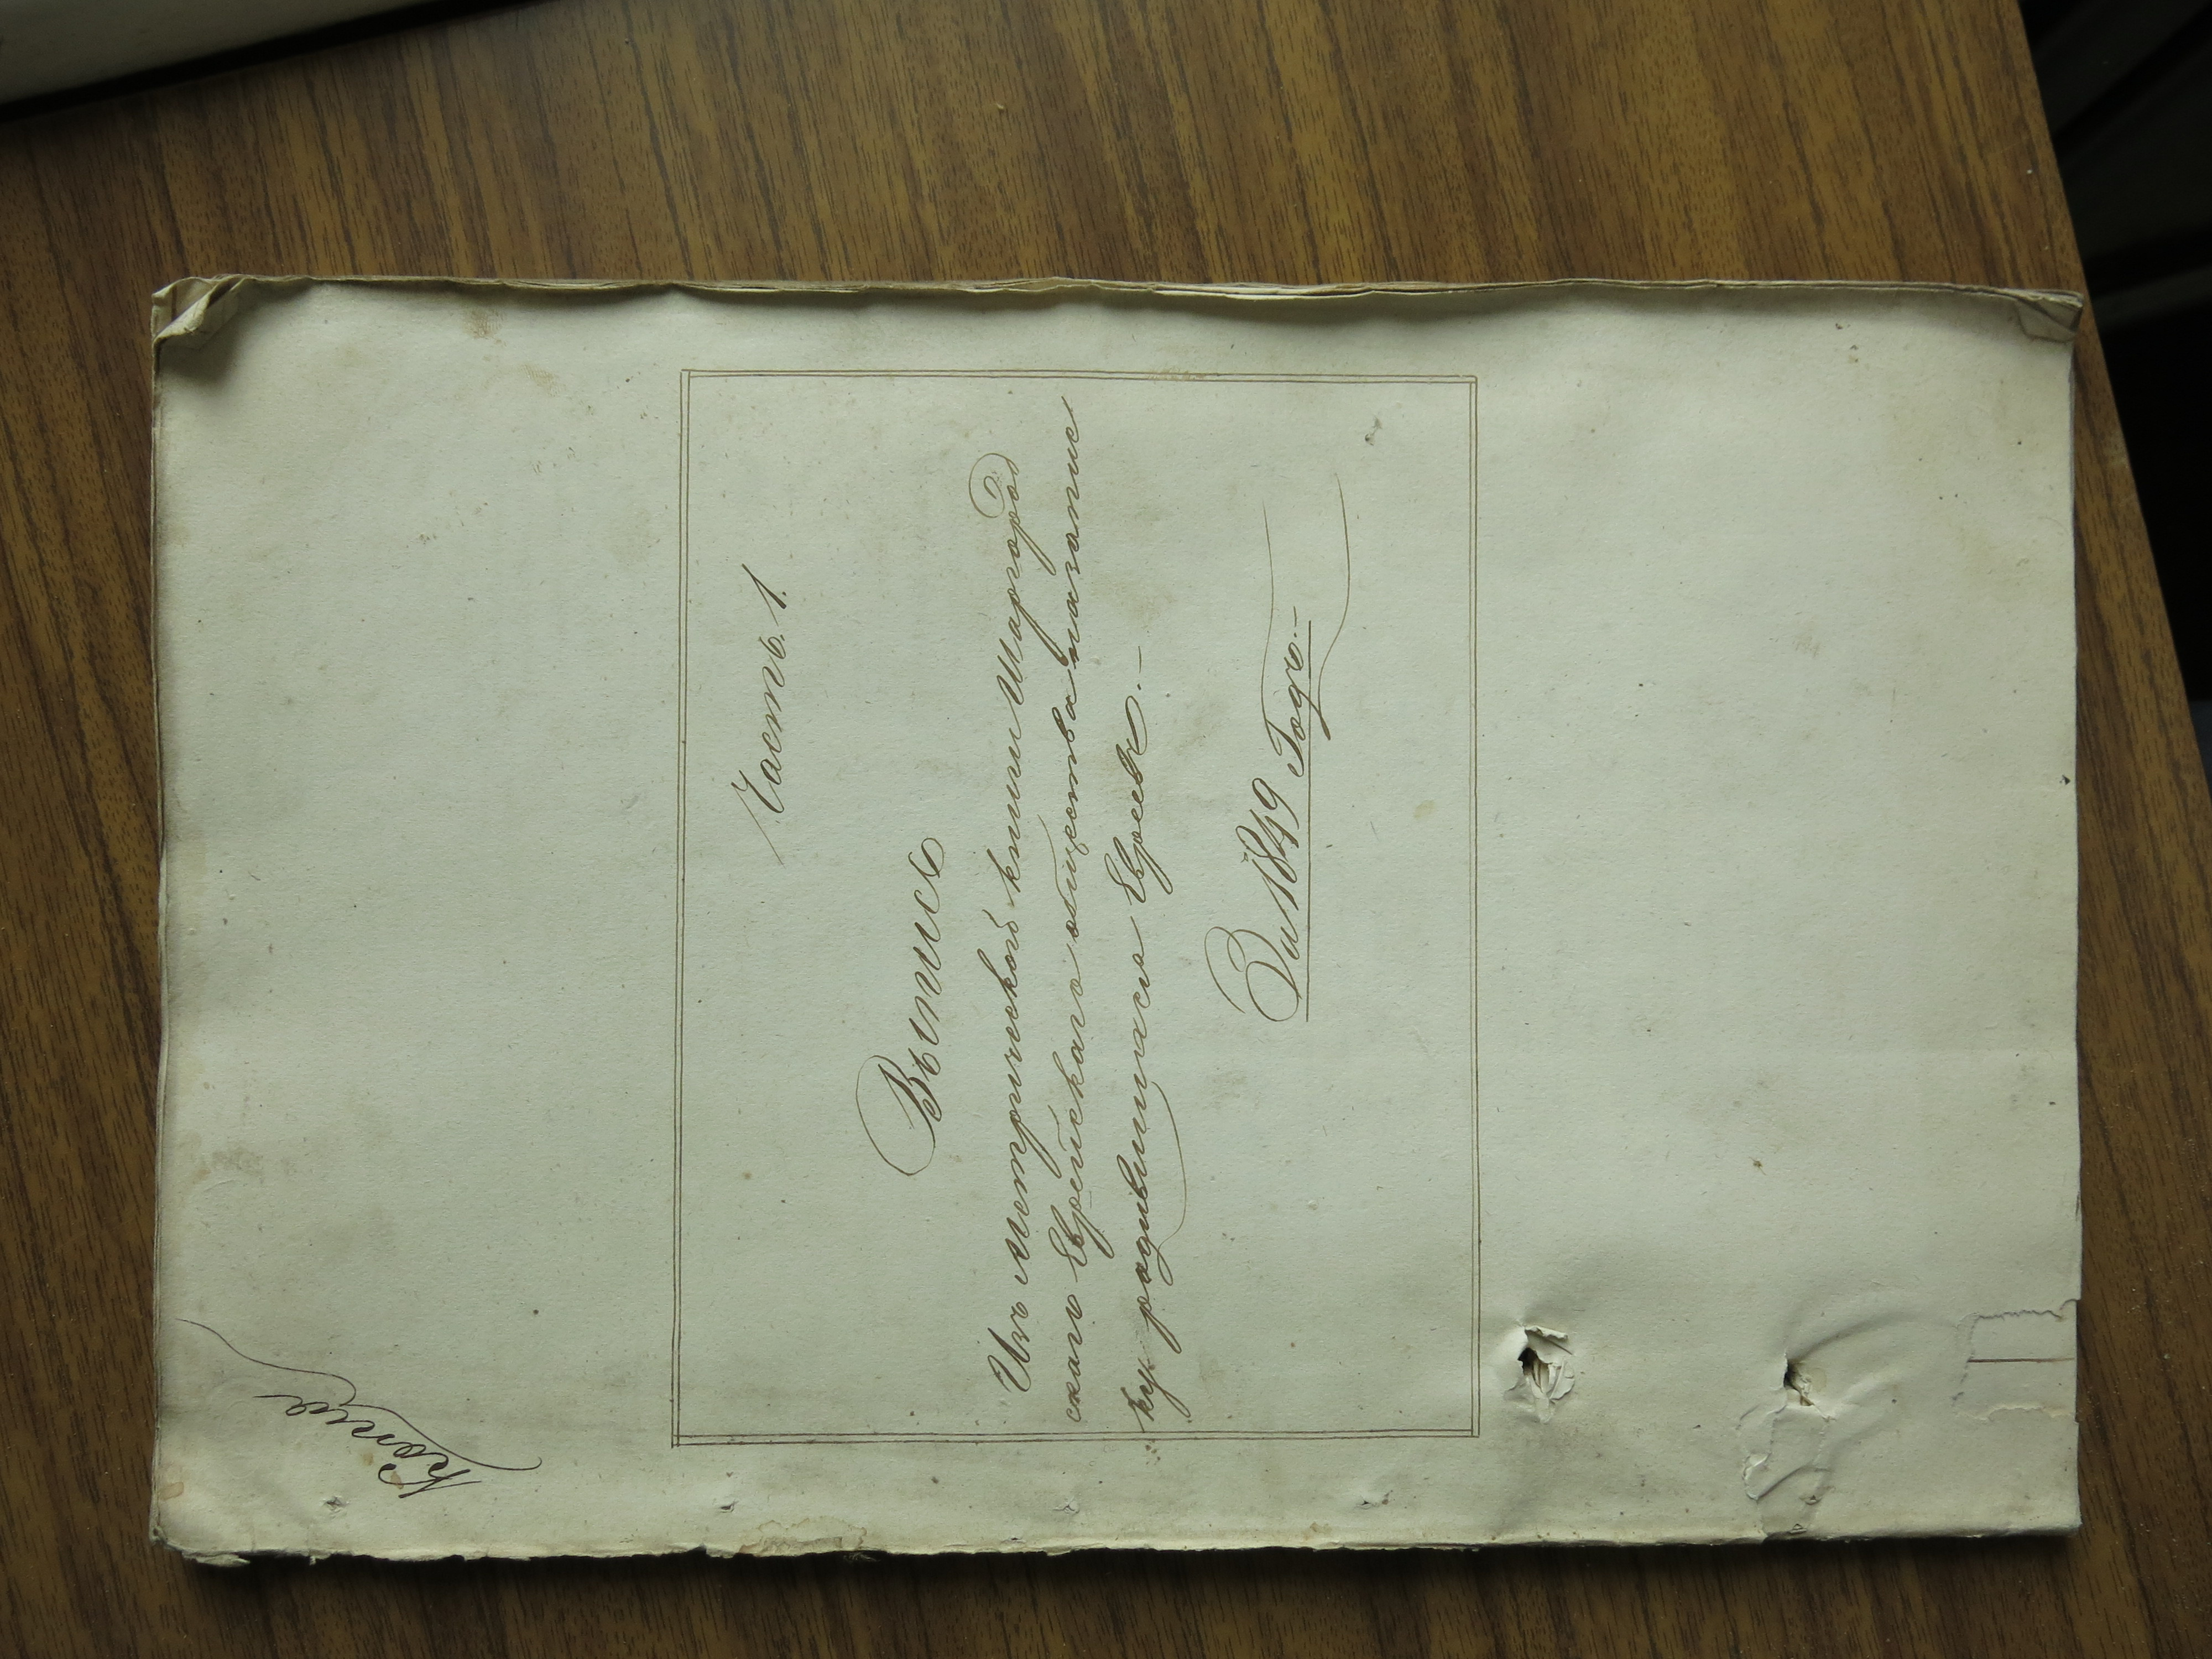 Копія
Часть 1.
Выпись
Изъ метрической книги Шарогород
скаго Еврейскаго общества на записи
ку родившихся Евреевъ.—
За 1849 Годъ.—